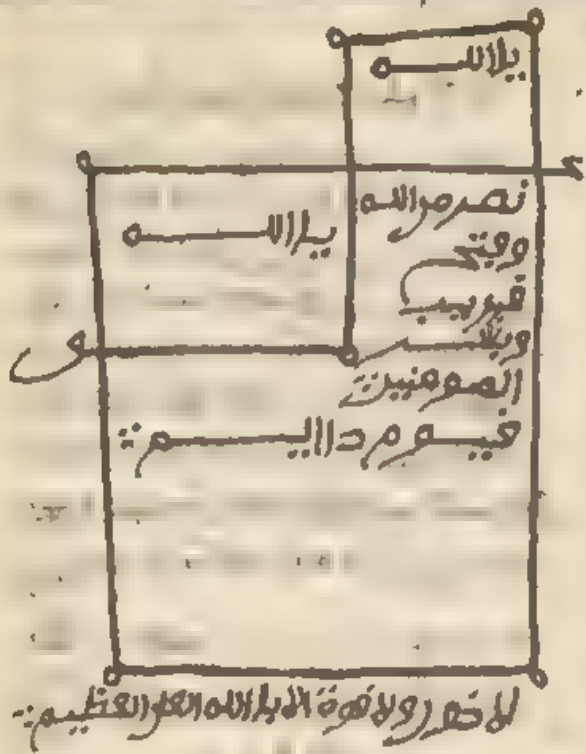 يلالله
يلالله
نصر من الله
وفتح
قريب
وبشر
المومنين
قيوم داليم
ولا قوة الا بالله العلي العظيم